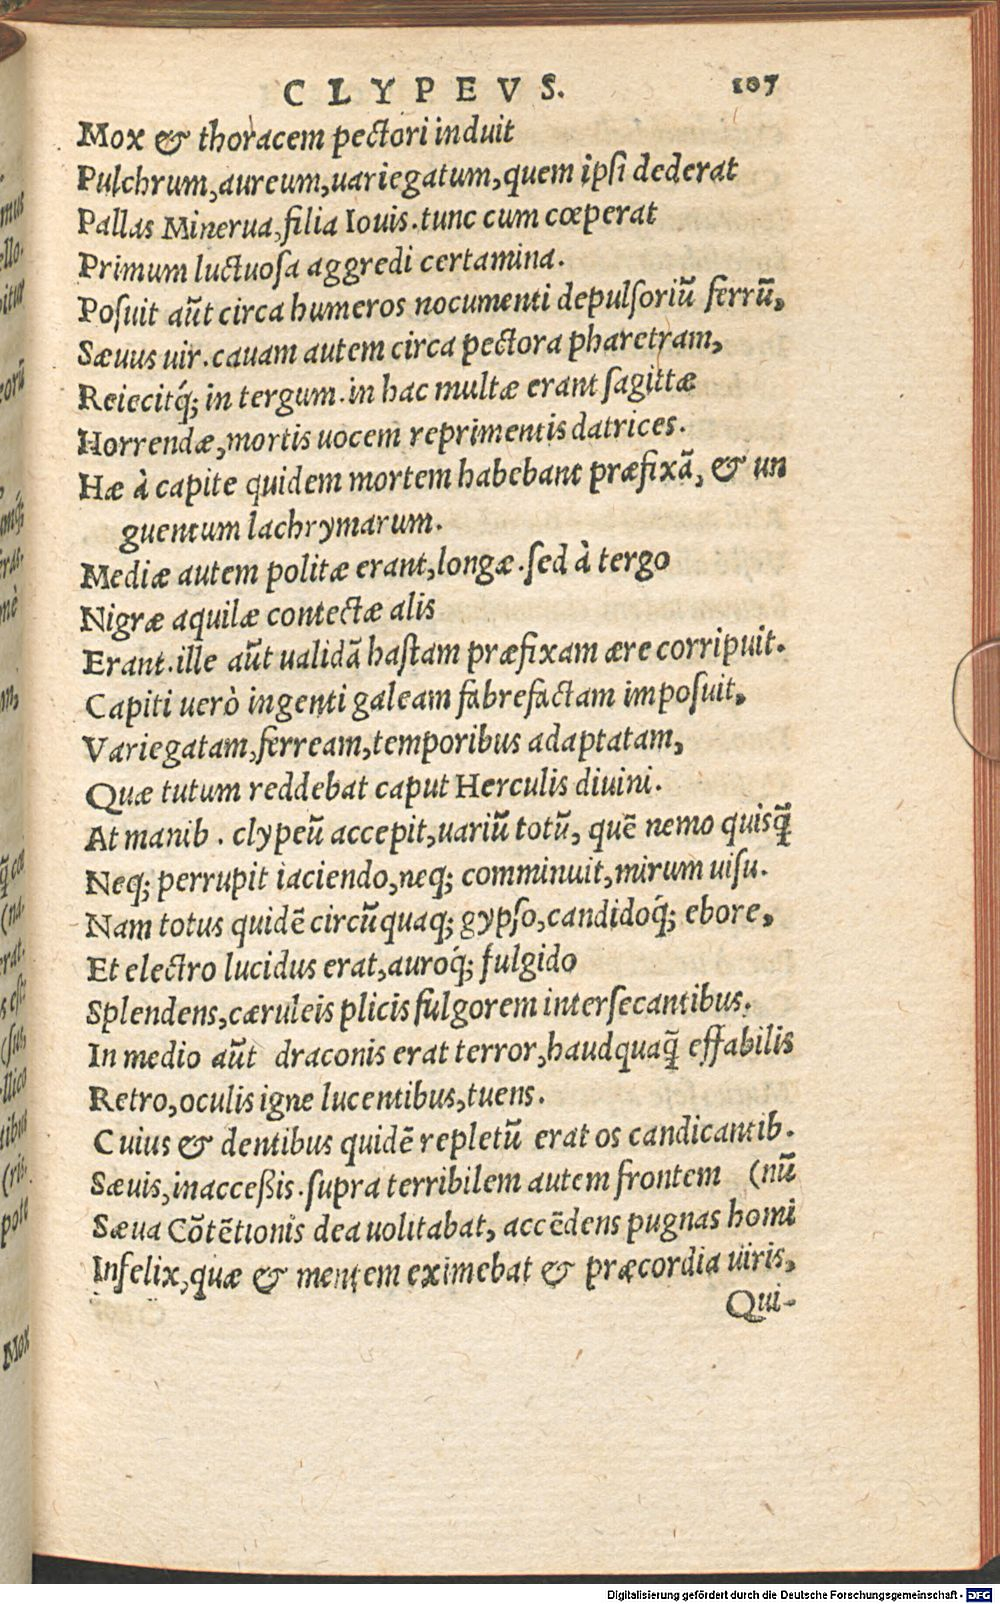 CLYPEVS. 107
Mox & thoracem pectori induit
Pulchrum, aureum, uariegatum, quem ipſi dederat
Pallas Minerua, filia Iouis. tunc cum cœperat
Primum luctuoſa aggredi certamina.
Poſuit aũt circa humeros nocumenti depulſoriũ ferrũ,
Sæuus uir. cauam autem circa pectora pharetram,
Reiecitq́; in tergum. in hac multæ erant ſagittæ
Horrendæ, mortis uocem reprimentis datrices.
Hæ à capite quidem mortem habebant præfixã, & un
guentum lachrymarum.
Mediæ autem politæ erant, longæ. ſed à tergo
Nigræ aquilæ contectæ alis
Erant. ille aũt ualidã haſtam præfixam ære corripuit.
Capiti uerò ingenti galeam fabrefactam impoſuit,
Variegatam, ferream, temporibus adaptatam,
Quæ tutum reddebat caput Herculis diuini.
At manib. clypeũ accepit, uariũ totũ, quẽ nemo quisq̃
Neq; perrupit iaciendo, neq; comminuit, mirum uiſu.
Nam totus quidẽ circũquaq; gypſo, candidoq́; ebore,
Et electro lucidus erat, auroq́; fulgido
Splendens, cæruleis plicis fulgorem interſecantibus.
In medio aũt draconis erat terror, haudquaq̃ effabilis
Retro, oculis igne lucentibus, tuens.
Cuius & dentibus quidẽ repletũ erat os candicantib.
Sæuis, inacceßis. ſupra terribilem autem frontem (nũ
Sæua Cõtẽtionis dea uolitabat, accẽdens pugnas homi
Infelix, quæ & mentem eximebat & præcordia uiris,
Qui-
mus
Mox
Digitalisierung gefördert durch die Deutsche Forschungsgemeinschaft - DFG